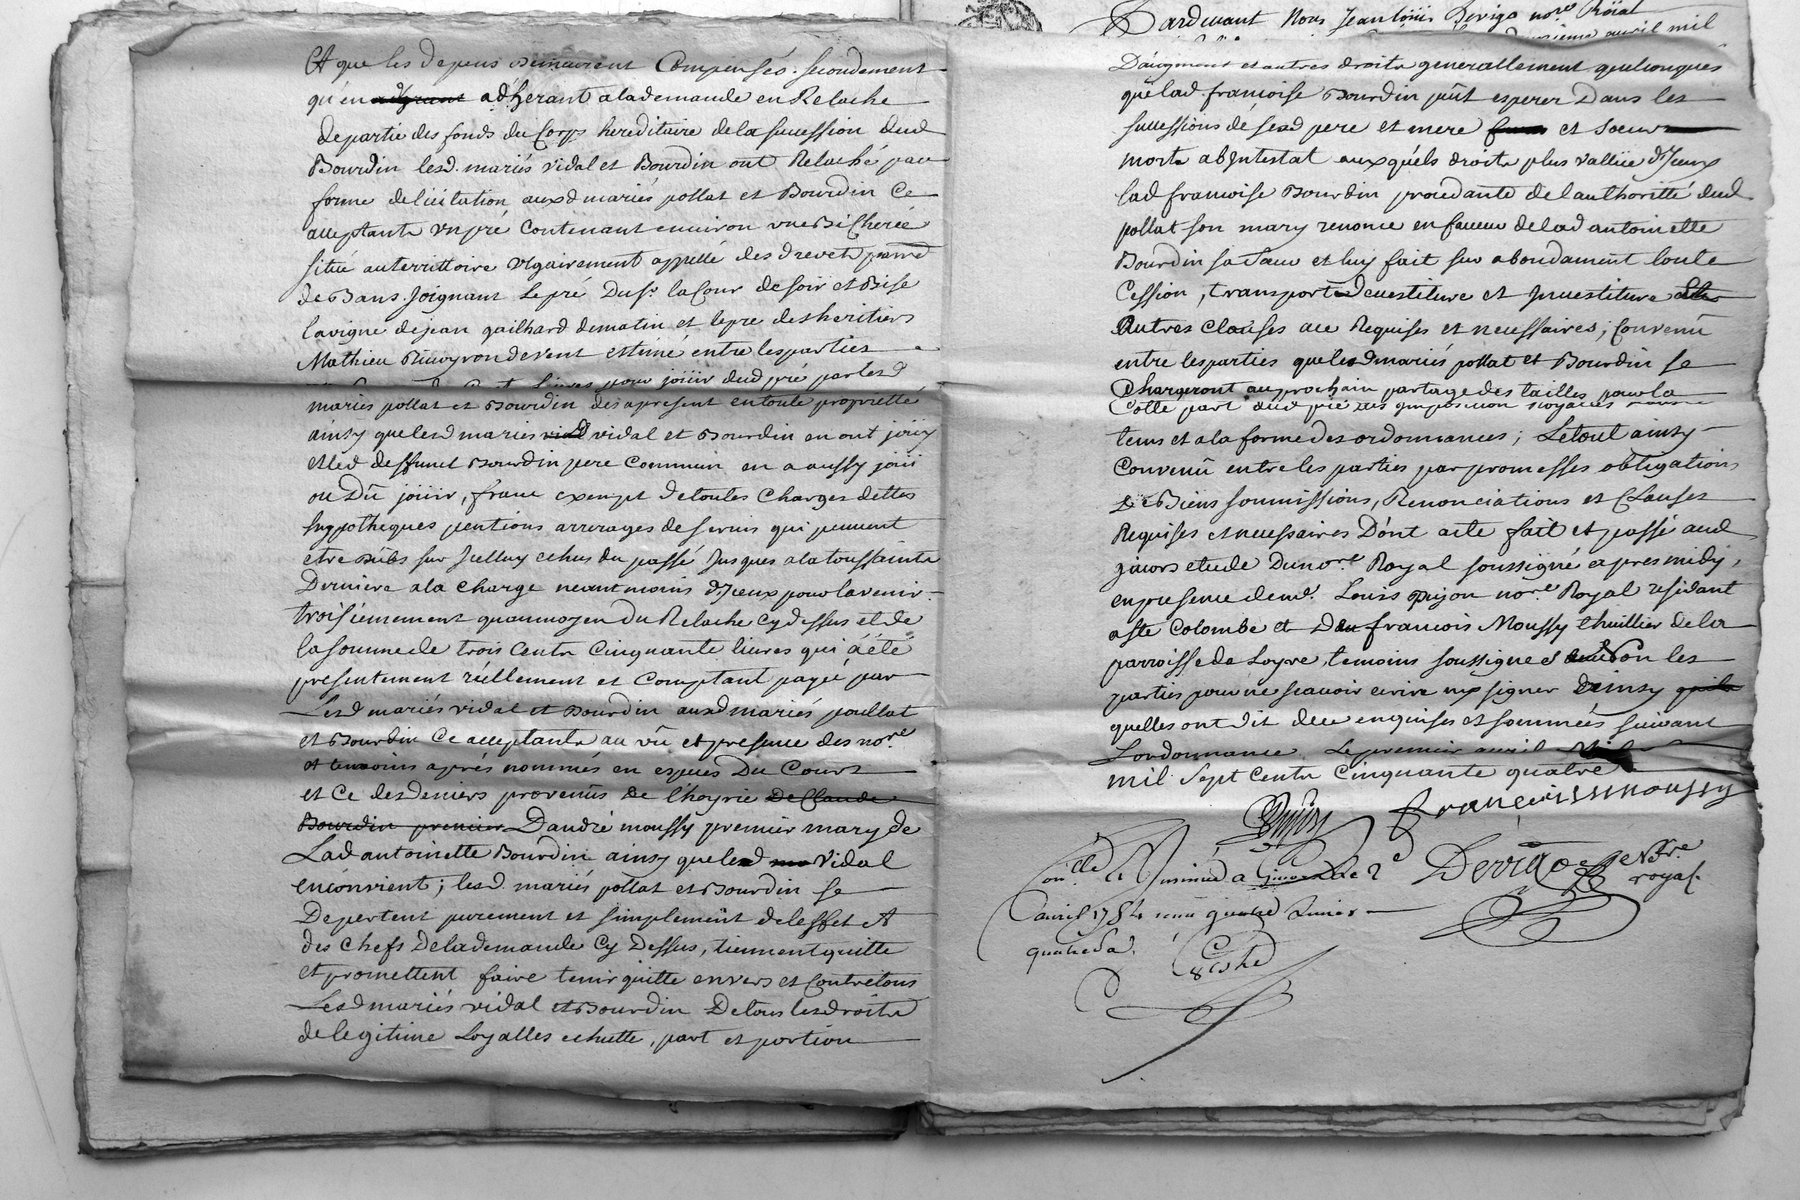 Et que les depens demeurent Compensés. secondement
qu'en adherant a la demande en Relache
de partie des fonds du Corps hereditaire de la succession dud
Bourdin lesd. mariés vidal et Bourdin ont Relaché par
forme de licitation auxd mariés pollat et Bourdin Ce
acceptants un pré Contenant environ une Bicherée
situé au territtoire vlgairement appellé des drevets
de Bans Joignant Le pré du Sr. laCour de soir et Bise
la vigne de jean gailhard de matin et le pre des heritiers
Mathieu Rivoyron de vent estimé entre les parties
livres pour joüir dud pré par lesd
mariés pollat et Bourdin des a present en toute propriette
ainsy que lesd mariés vidal et Bourdin en ont joüy
et led deffunct Bourdin pere Commun en a aussy joüi
ou Dû joüir, franc exempt de toutes Charges dettes
hypotheques pentions arrerages de servis qui peuvent
etre dûbs sur Jcelluy echus du passé Jusques a la toussaints
Derniere a la Charge neantmoins d'Jceux pour l'avenir.
troisiemement qu'au moyen du Relache cy dessus et de
la somme de trois Cents Cinquante livres qui a été
presentement réellement et Comptant payée par
Lesd mariés vidal et Bourdin auxd mariés poullat
et Bourdin Ce acceptants au vû et presence des nore.
et temoins aprés nommés en especes Du Cours
et Ce des deniers provenûs de l'hoyrie De Claude
Bourdin premier D'andré moussy premier mary de
Lad antoinette Bourdin ainsy que led vidal
en convient; lesd. mariés pollat et Bourdin se
Departent purement et simplement de l'effet et
des chefs de la demande Cy Dessus, tiennent quitte
et promettent faire tenir quitte envers et Contre tous
Lesd mariés vidal et Bourdin De tous les droits
de legitime Loyalles echutte, part et portion
Pardevant Nous Jean Loüis Derigo nore. Röial
avril mil
D'augment et autres droits generallement quelconques
que lad francoise Bourdin pût esperer Dans les
successions de sesd pere et mere et soeur
morts abJntestat auxquéls droits plus vallüe d'Jceux
lad francoise Bourdin procedante de l'authoritté dud
pollat son mary renonce en faveur de lad antoinette
Bourdin sa soeur et luy fait sur abondament toute
Cession, transport devestiture et Jnvestiture
Autres clauses a ce Requises et necessaires; Convenû
entre les parties que lesd mariés pollat et Bourdin se
Chargeront au prochain partage des tailles pour la
Cotte part dud pré des Jmposition Royalles
tems et a la forme des ordonnances; Le tout ainsy
Convenû entre les parties par promesses obligations
de Biens soumissions, Renonciations et Clauses
Requises et necessaires D'ont acte fait et passé aud
givors etude Du nore. Royal soussigné apres midy,
en presence de me. Louis nore. Royal residant
a Ste Colombe et De francois Moussy thuillier de la
parroisse de Loyre, temoins soussignes Non les
parties pour ne scavoir ecrire ny signer
quelles ont dit de ce enquises et sommées suivant
L'ordonnance. Le premier avril
mil sept Cents Cinquante quatre
francois moussy
Derigo Nore. royal
Conllé et Jnsinué a Givors le 2e
avril 1754 reçu quatre Livres
quatre s.